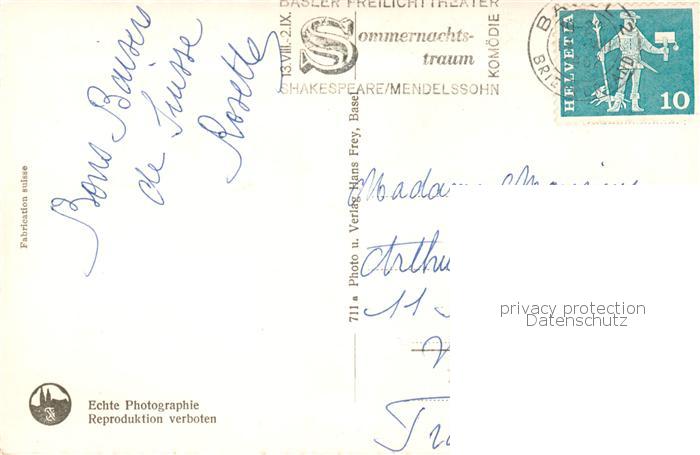 BASLER FREILICHTTHEATER
13.VIII.-2.IX.
Sommernachts-
traum
KOMÖDIE
SHAKESPEARE/MENDELSSOHN
HELVETIA
10
Bons Baisers
de Suisse
Rosette
Fabrication suisse
711 a Photo u. Verlag Hans Frey, Basel
Madame
11
privacy protection
Datenschutz
Echte Photographie
Reproduktion verboten